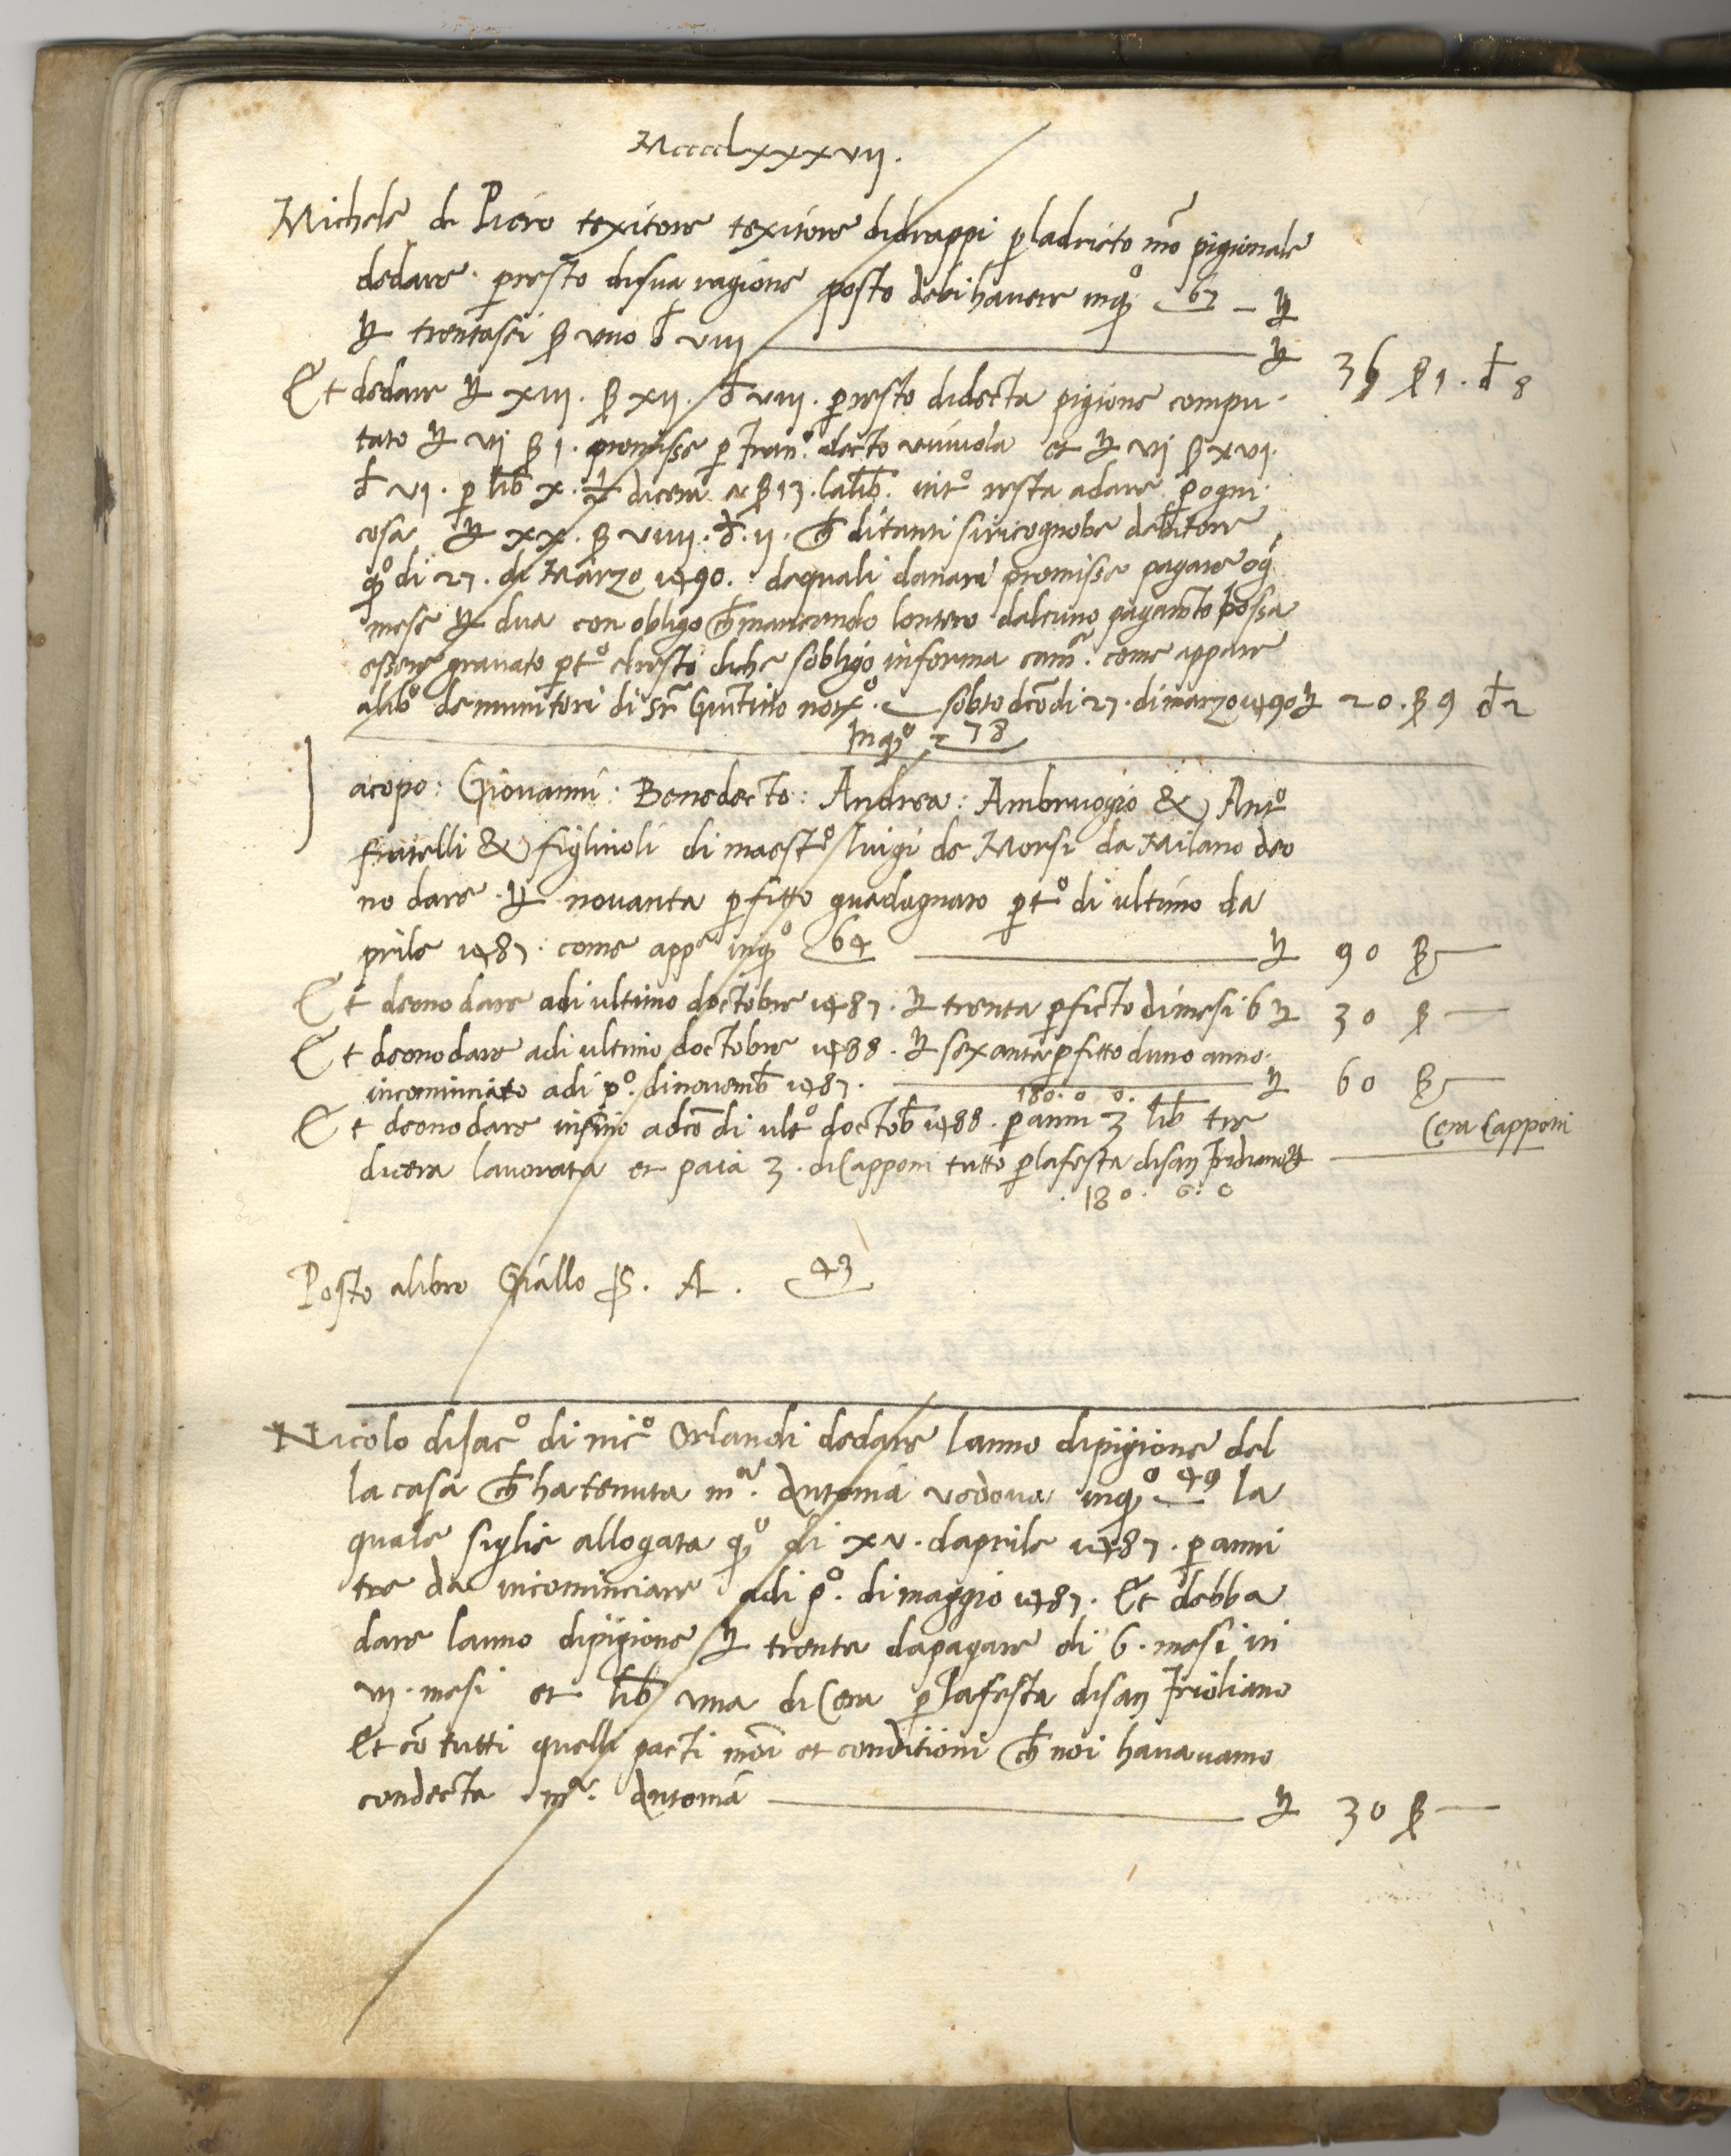 Mcccclxxxvij.
Michele di Piero texitore texitore didrappi p ladricto mo pigionale
dedare. p resto disua ragione posto debi havere inqo 67 – ₶
₶ trentasei ß uno d viij ₶ 36 ß 1. d 8
Et dedare ₶ xiii. ß xij. d viii. p resto didecta pigione compu
tato ₶ vj ß 1. promisse p Fran.o decto et ₶ vj ß xvj.
d vj. p lib x. ½ dicera a ß 13. lalib. intto resta adare p ogni
cosa ₶ xx. ß viiij. d. ij. ch ditanti siricognobe debitore
qo di 27. di Marzo 1490. dequali danari promisse pagare og
mese ₶ dua con obligo ch mancando lontero dalcuno pagamto possa
essere gravato p tto elresto diche sobligo informa cam. come appare
alibo de di sr not.o sobto dco di 27. dimarzo 1490 ₶ 20. ß 9 d 2
Inqo 78
Jacopo: Giovanni: Benedecto: Andrea: Ambruogio & Anto
fratelli & figlinoli di maesto luigi de Morsi da Milano deo
no dare. ₶ novanta p fitto guadagnato p tto di ultimo da
prile 1487. come appe inqo 64 ₶ 90 ß –
Et deono dare adi ultimo doctobre 1487. ₶ trenta p ficto dimesi 6 ₶ 30 ß –
Et deono dare adi ultimo doctobre 1488. ₶ sexanta p fitto duno anno.
incominciato adi po. dinovemb 1487. ₶ 60 ß –
180. 0 0.
Et deono dare insino adco di ulto doctob 1488. p anni 3 lib tre Cera Capponi
dicera lavorata et paia 3. diCapponi tutto p lafesta disan Fridiano
180. 0: 0
Posto alibro Giallo S. A. 43
Nicolo disaco di nico Orlandi dedare lanno dipigione del
la casa ch ha tenuta ma. Antonia vedova inqo 49 la
quale siglie allogata qo di xv. daprile 1487. p anni
tre da incominciare adi po. di maggio 1487. Et debba
dare lanno dipigione ₶ trenta dapagare di 6. mesi in
vj. mesi et lib una di Cera p lafesta disan Fridiano
Et co tutti quelli pacti modi et conditioni ch noi havavamo
condecta ma. Antonia ₶ 30 ß –